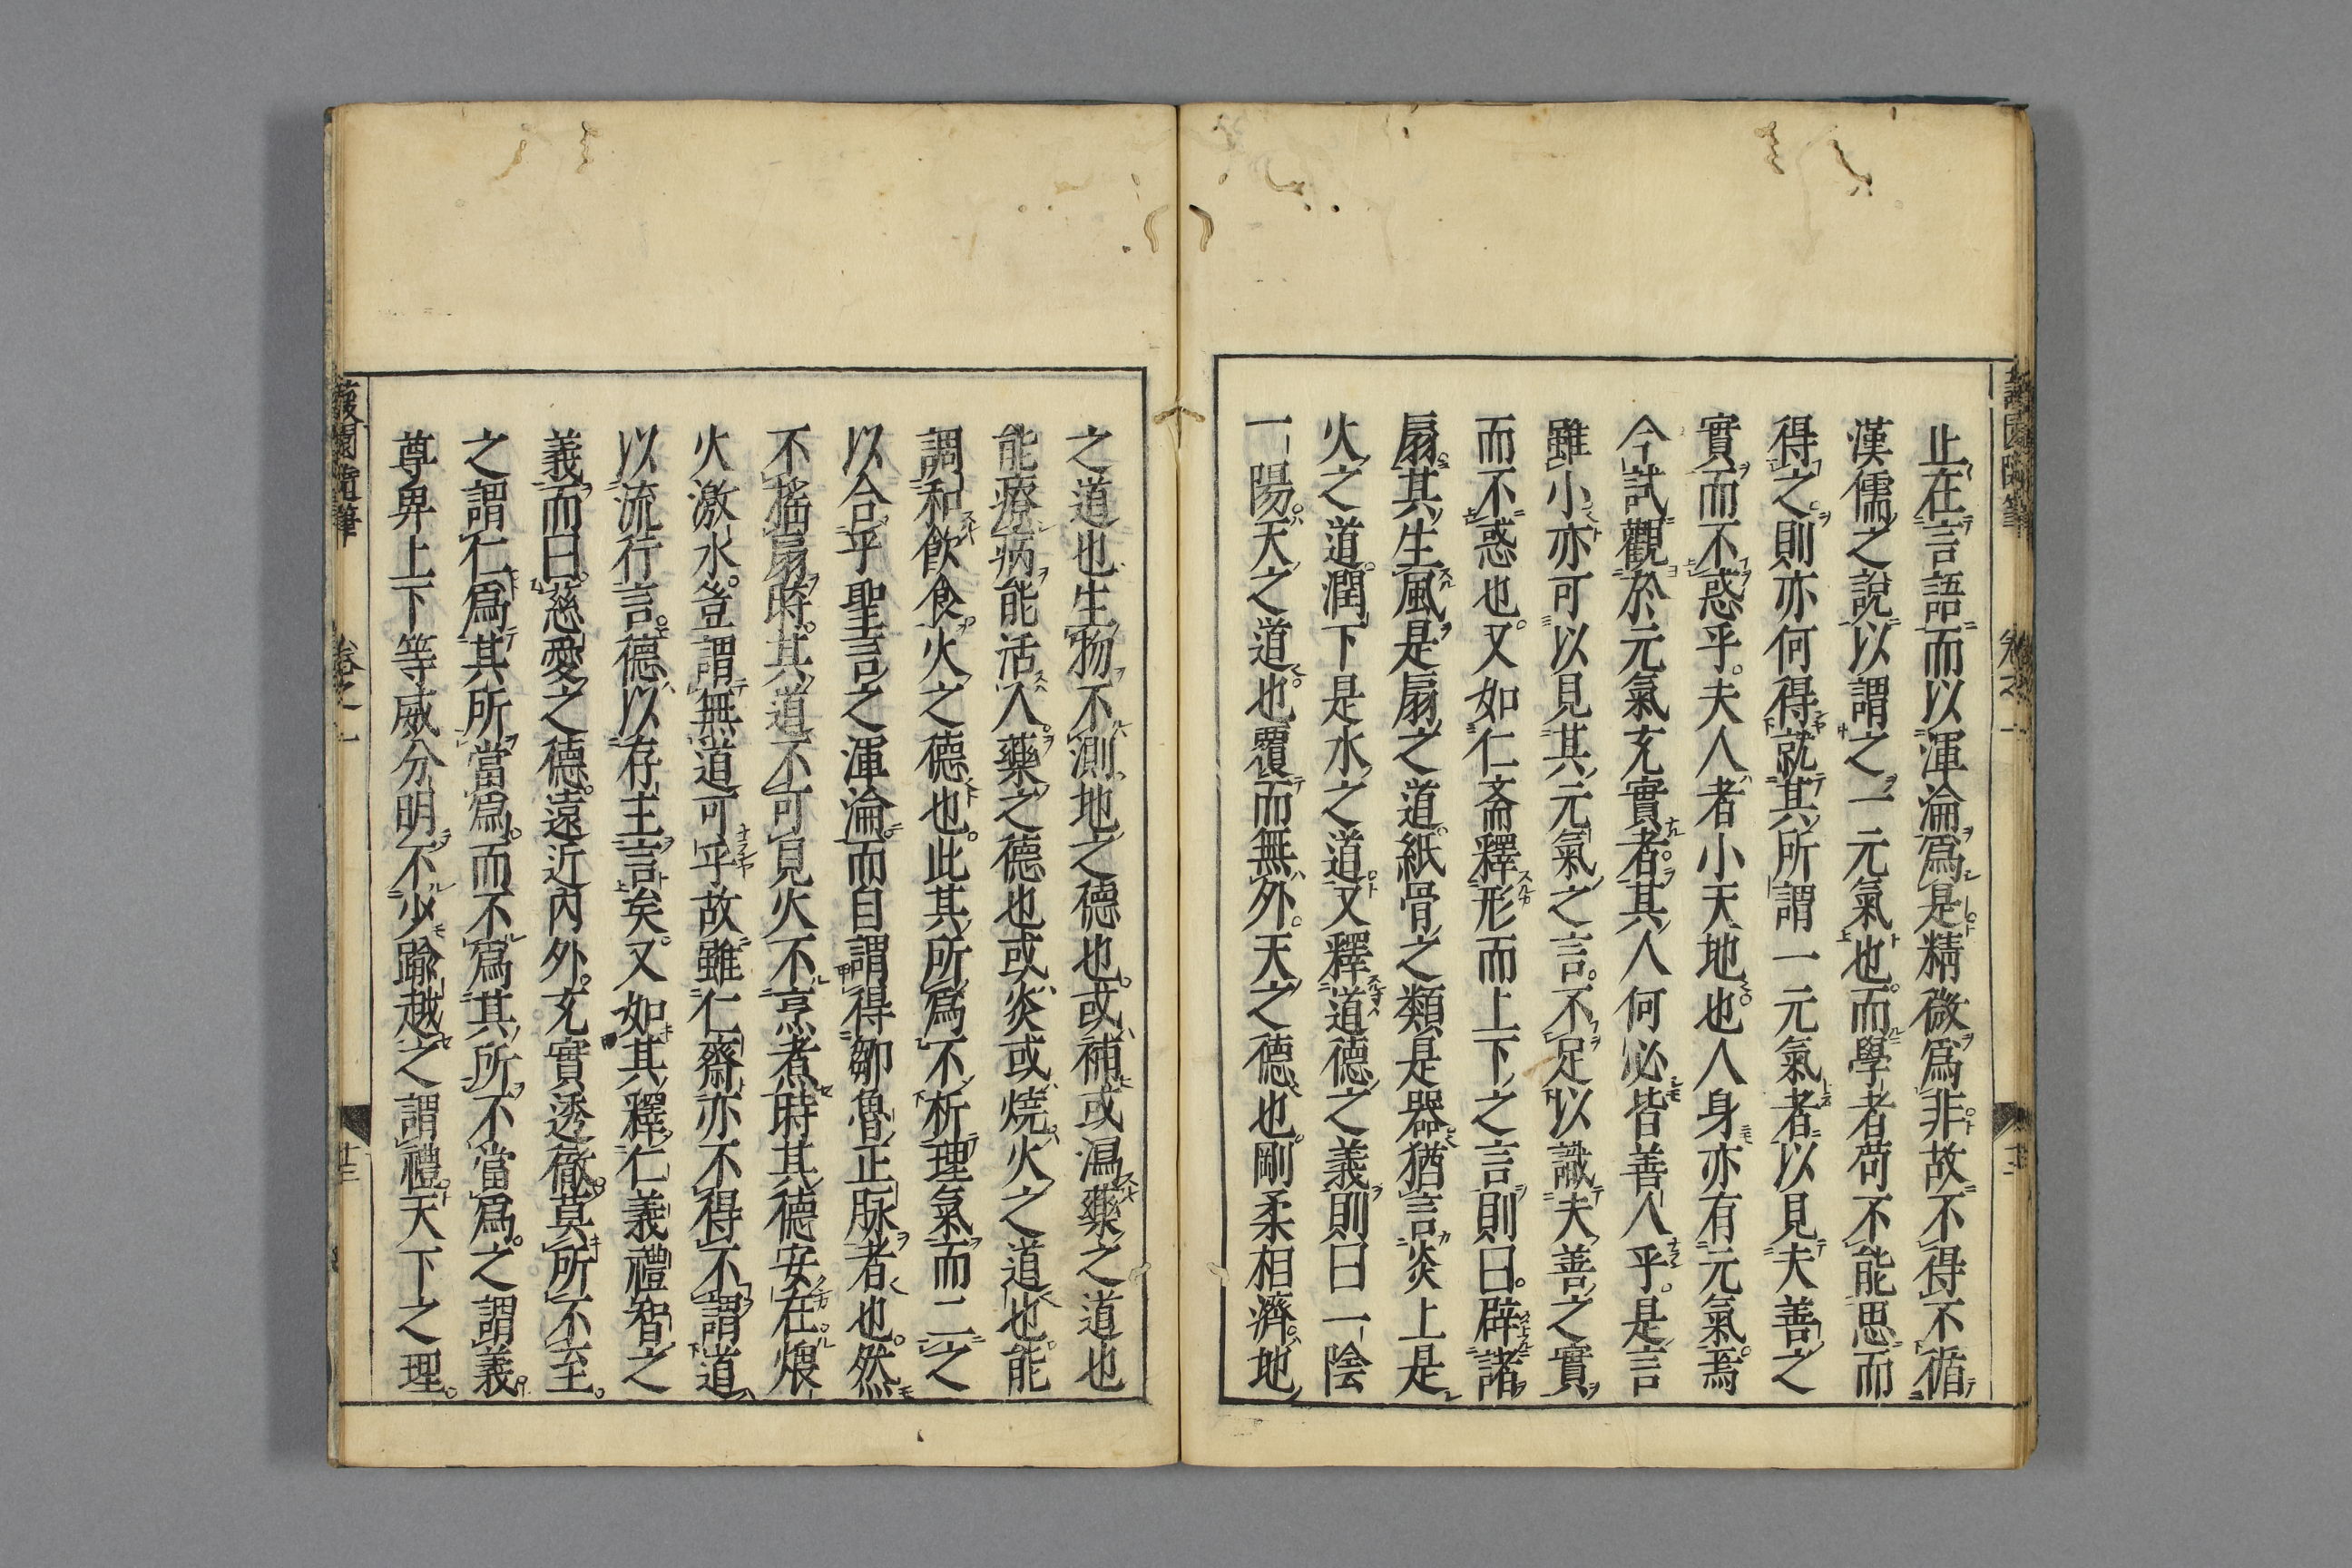 蘐園隨筆 卷之一
止在言語而以渾淪爲是精微爲非故不得不循
漢儒之說以謂之一元氣也而學者苟不能思而
得之則亦何得就其所謂一元氣者以見夫善之
實而不惑乎夫人者小天地也人身亦有元氣焉
今試觀於元氣充實者其人何必皆善人乎是言
雖小亦可以見其元氣之言不足以識夫善之實
而不惑也又如仁斎釋形而上下之言則曰辟諸
扇其生風是扇之道紙骨之類是器猶言炎上是
火之道潤下是水之道又釋道德之義則曰一陰
一陽天之道也覆而無外天之德也剛柔相濟地
之道也生物不測地之德也或補或瀉藥之道也
能療病能活人藥之德也或炎或燒火之道也能
調和飲食火之德也此其所爲不析理氣而二之
以合乎聖言之渾淪而自謂得鄒魯正脉者也然
不搖扇時其道不可見火不烹煮時其德安在煨
火激水豈謂無道可乎故雖仁齋亦不得不謂道
以流行言德以存主言矣又如其釋仁義禮智之
義而曰慈愛之德遠近內外充實透徹莫所不至
之謂仁爲其所當爲而不爲其所不當爲之謂義
尊卑上下等威分明不少踰越之謂禮天下之理
蘐園隨筆 卷之一 廿三